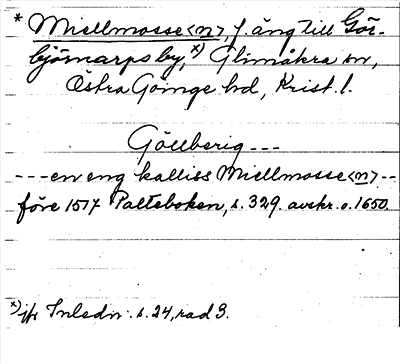 * Miellmosse<n>, f. äng till Gör-
björnarps by, x) Glimåkra sn,
Östra Göinge hd, Krist. l.
Göllberig ---
--- en eng kalliss Miellmosse<n> --
före 1517 Palteboken, s. 329. avskr. o. 1650.
x) jfr Inledn. s. 24, rad 3.